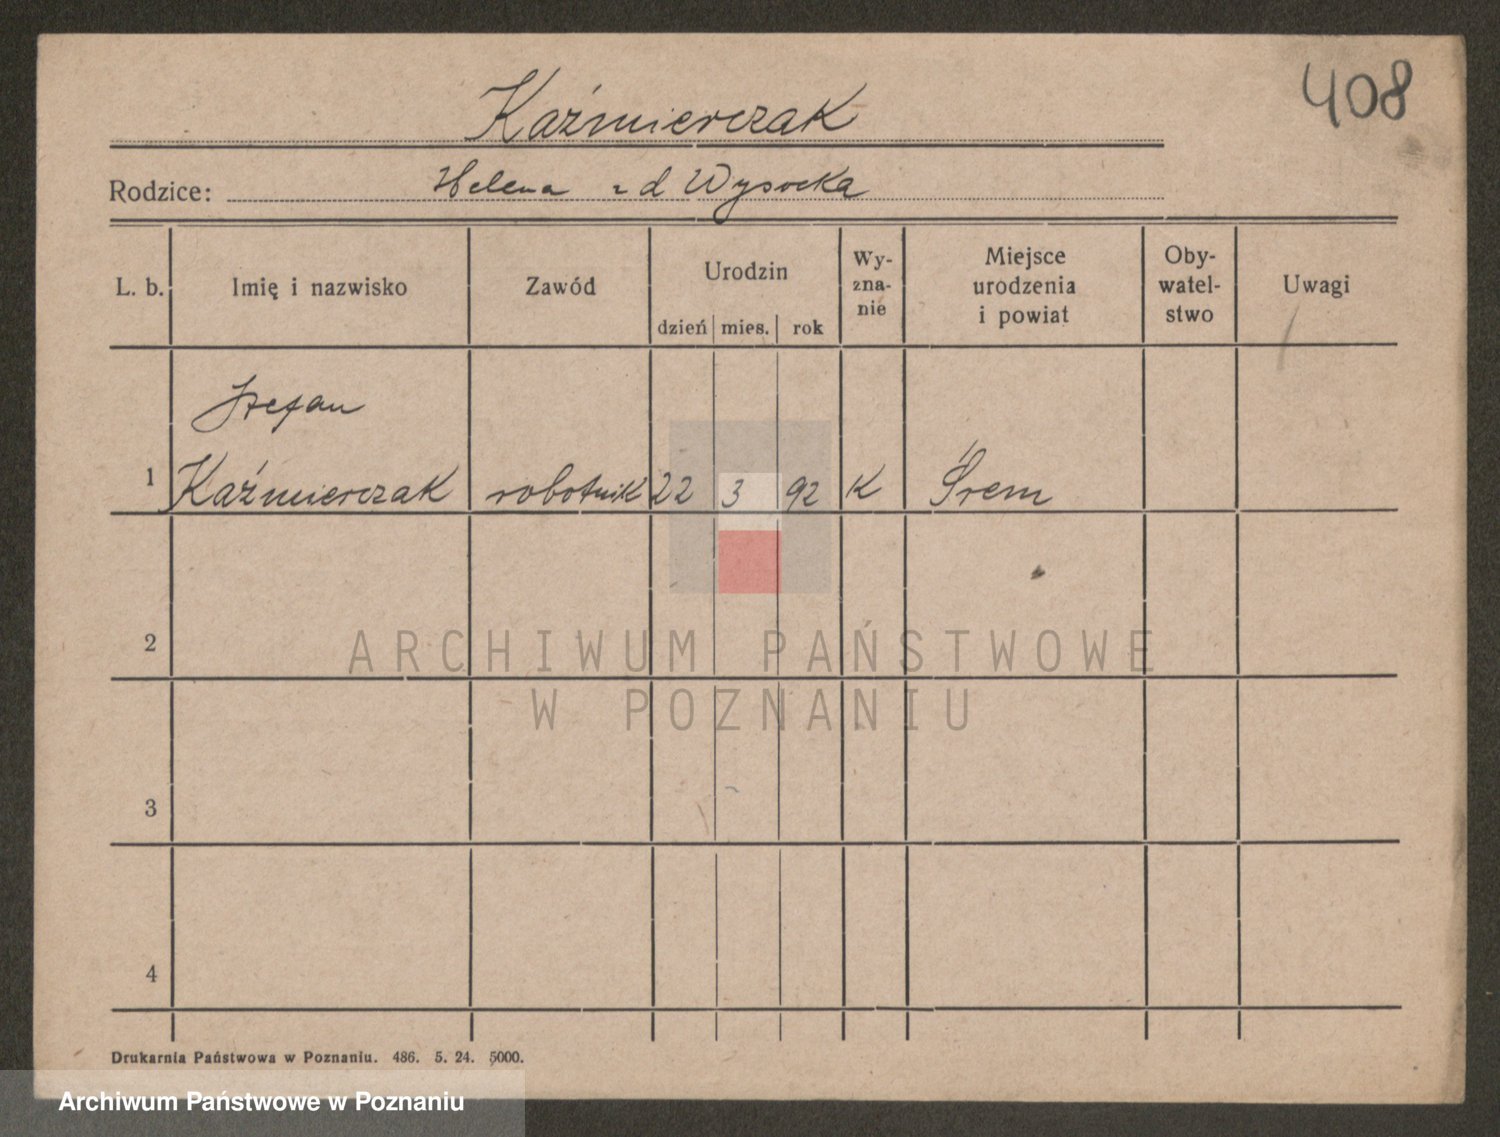 408
Kaźmierczak
Rodzice: Helena z d Wysocka
L. b. Imię i nazwisko Zawód Urodzin dzień mies. rok Wy-zna-nie Miejsce urodzenia i powiat Oby-watel-stwo Uwagi
Stefan
1 Kaźmierczak robotnik 22 3 92 K Śrem
2
ARCHIWUM PAŃSTWOWE
W POZNANIU
3
4
Drukarnia Państwowa w Poznaniu. 486. 5. 24. 5000.
Archiwum Państwowe w Poznaniu